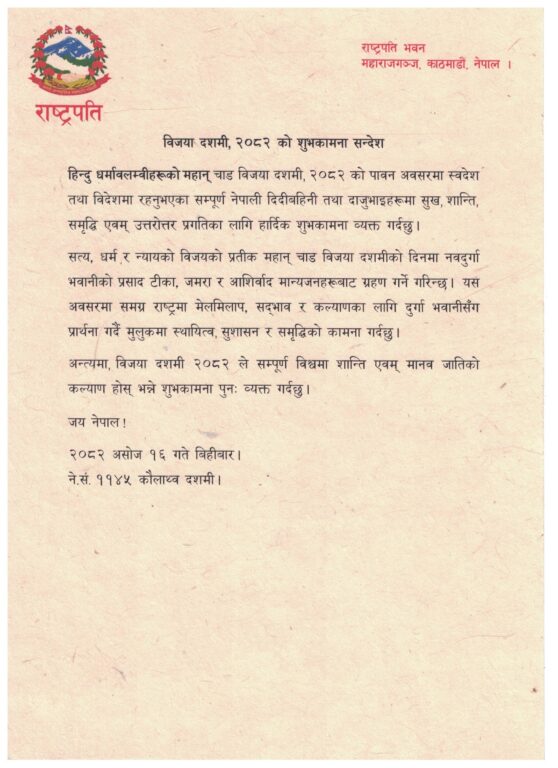 राष्ट्रपति
राष्ट्रपति भवन
महाराजगञ्ज, काठमाडौं, नेपाल ।
विजया दशमी, २०८२ को शुभकामना सन्देश
हिन्दु धर्मावलम्बीहरूको महान् चाड विजया दशमी, २०८२ को पावन अवसरमा स्वदेश
तथा विदेशमा रहनुभएका सम्पूर्ण नेपाली दिदीबहिनी तथा दाजुभाइहरूमा सुख, शान्ति,
समृद्धि एवम् उत्तरोत्तर प्रगतिका लागि हार्दिक शुभकामना व्यक्त गर्दछु।
सत्य, धर्म र न्यायको विजयको प्रतीक महान् चाड विजया दशमीको दिनमा नवदुर्गा
भवानीको प्रसाद टीका, जमरा र आशिर्वाद मान्यजनहरूबाट ग्रहण गर्ने गरिन्छ। यस
अवसरमा समग्र राष्ट्रमा मेलमिलाप, सद्‌भाव र कल्याणका लागि दुर्गा भवानीसँग
प्रार्थना गर्दै मुलुकमा स्थायित्व, सुशासन र समृद्धिको कामना गर्दछु।
अन्त्यमा, विजया दशमी २०८२ ले सम्पूर्ण विश्वमा शान्ति एवम् मानव जातिको
कल्याण होस् भन्ने शुभकामना पुनः व्यक्त गर्दछु।
जय नेपाल!
२०८२ असोज १६ गते बिहीबार।
ने.सं. ११४५ कौलाथ्व दशमी।